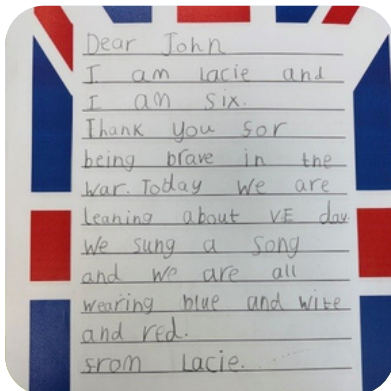 Dear John
I am Lacie and
I am six.
Thank you sor
being brave in the
war. Today we are
leaning about VE day
We sung a song
and we are all
wearing blue and wite
and red.
srom Lacie.